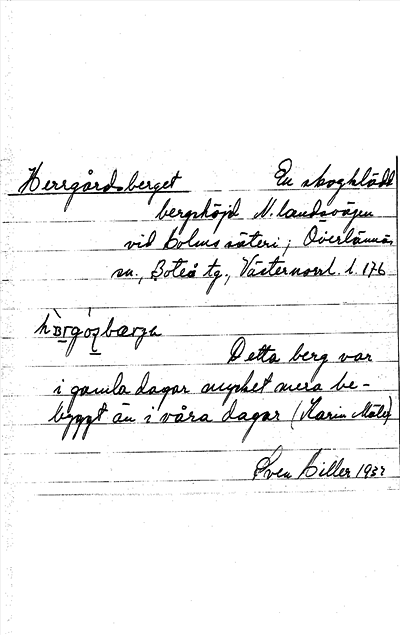 Herrgårdsberget En skogklädd
bergshöjd N. landsvägen
vid Holms säteri, Överlännäs
sn., Boteå tg., Västernorrl. l. 176
Detta berg var
i gamla dagar mycket mera be-
byggt än i våra dagar (Karin Måler)
Sven Hiller 1937